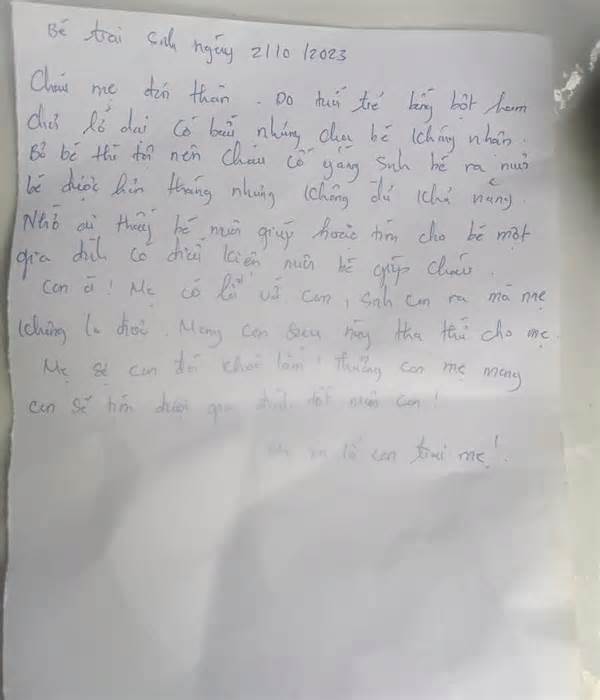 Bé trai sinh ngày 2/10/2023
Cháu mẹ đơn thân. Do tuổi trẻ bồng bột ham
chơi lỡ dại có bầu nhưng cha bé không nhận.
Bỏ bé thì tội nên cháu cố gắng sinh bé ra nuôi
bé được hơn tháng nhưng không đủ khả năng.
Nhờ ai thấy bé nuôi giúp hoặc tìm cho bé một
gia đình có điều kiện nuôi bé giúp cháu.
Con ơi! Mẹ có lỗi với con, sinh con ra mà mẹ
không lo được. Mong con sau này tha thứ cho mẹ.
Mẹ sẽ con đỡ khổ lắm! Thương con mẹ mong
con sẽ tìm được gia đình tốt nuôi con!
con trai mẹ!